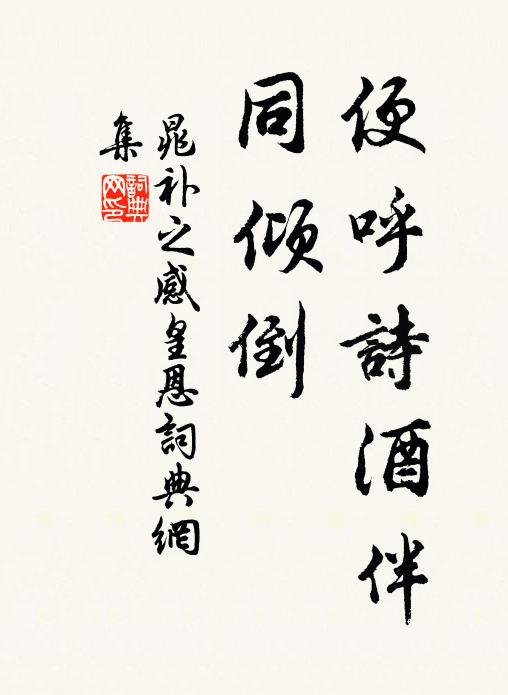 便呼詩酒伴
同傾倒
晁补之感皇恩詞典網
集
詞典
网印